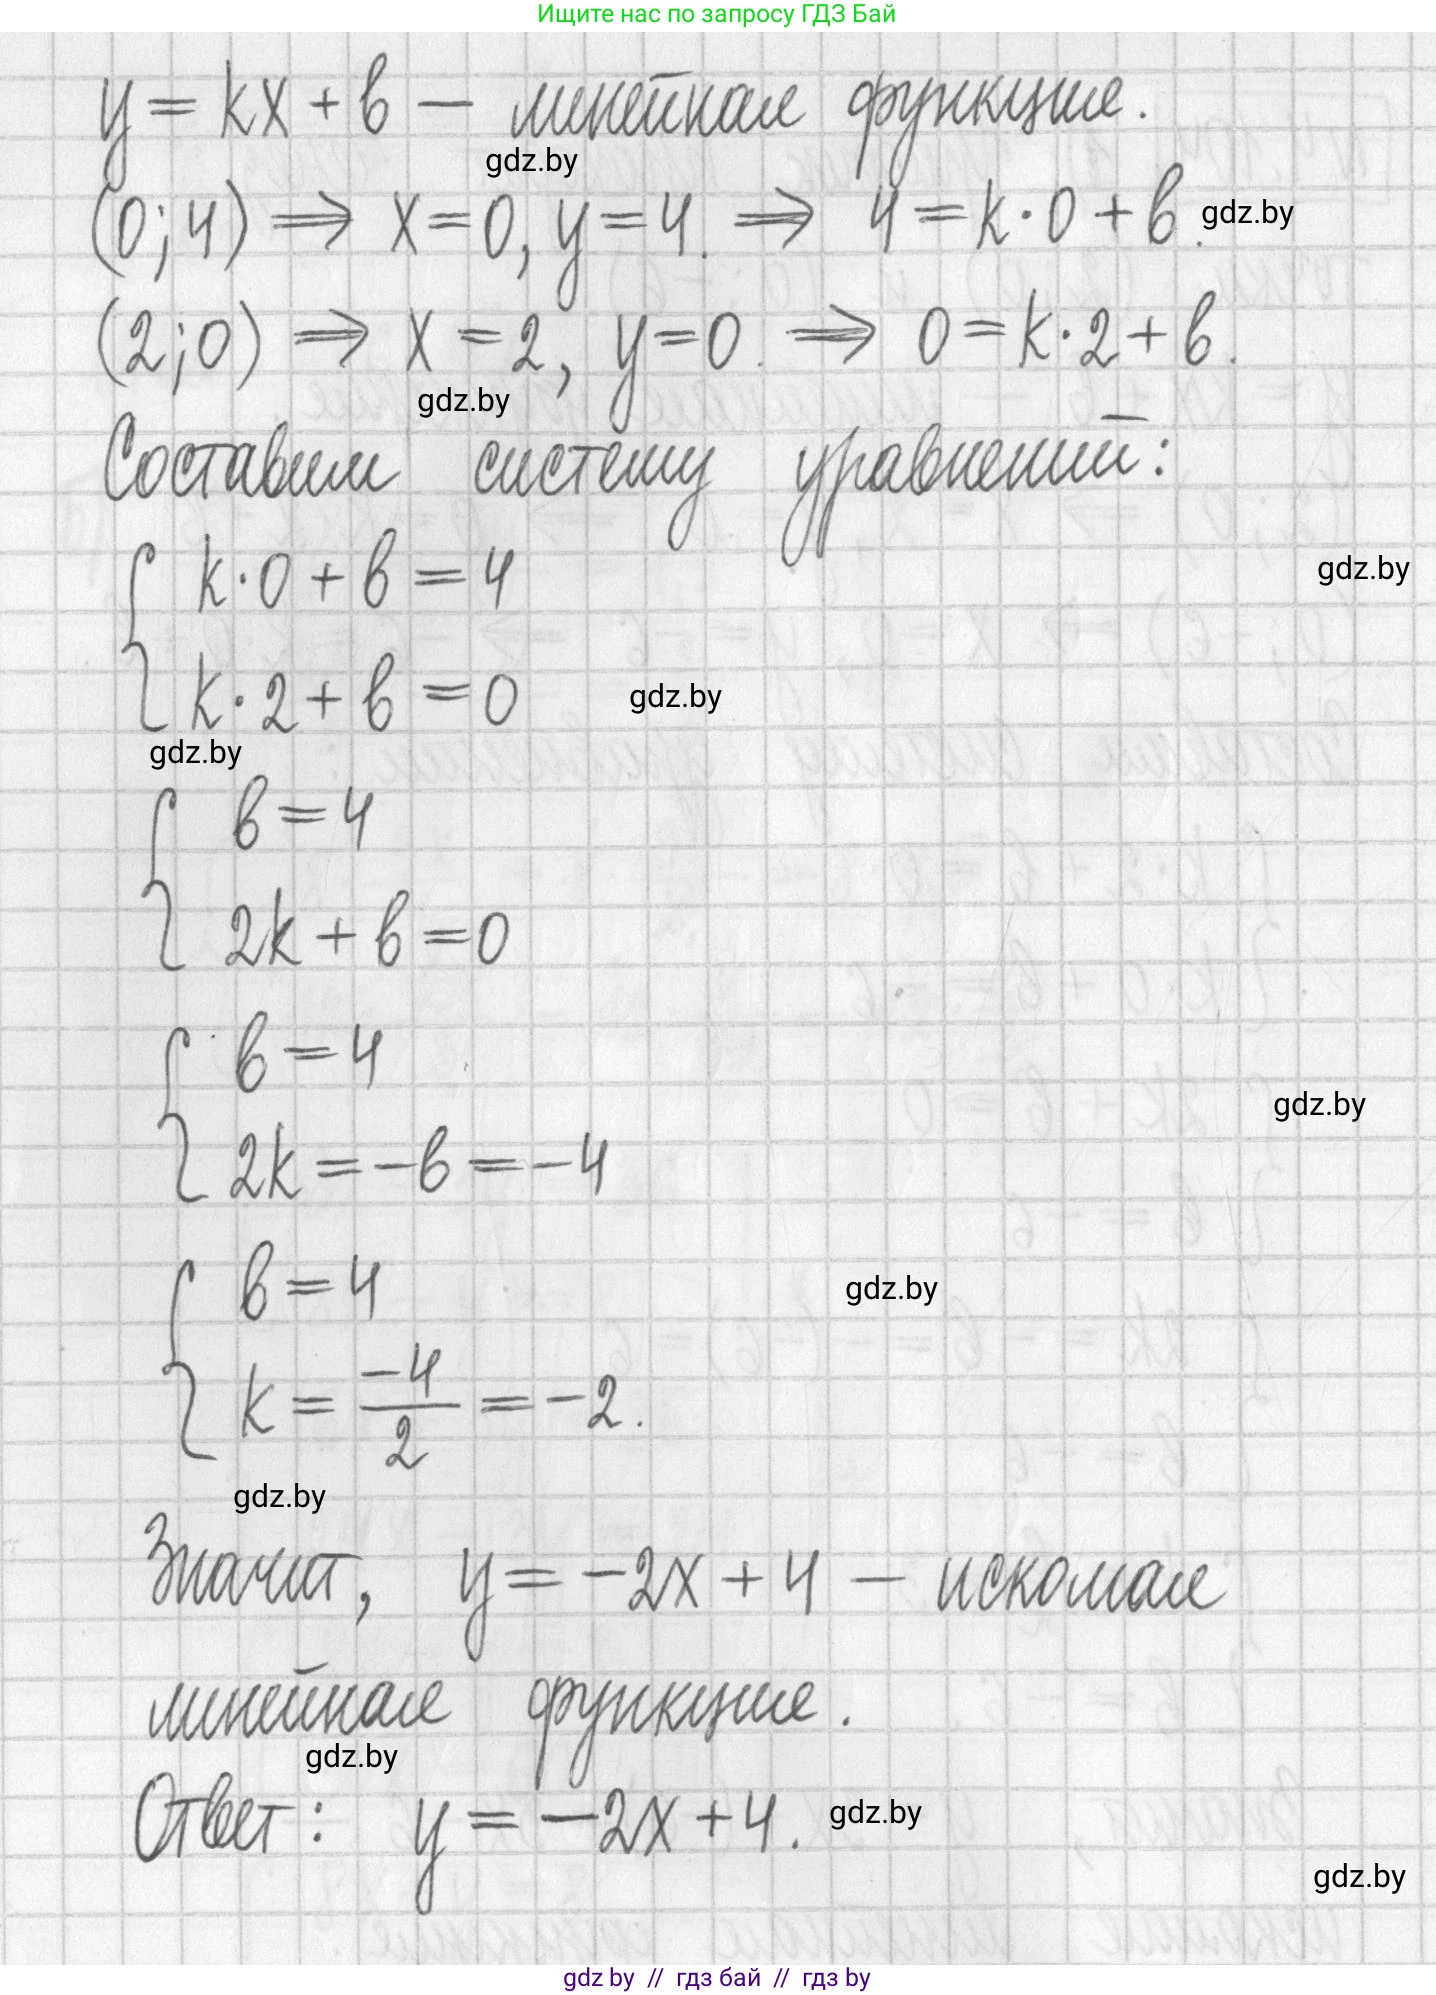 Ищите нас по запросу ГДЗ Бай
y = kx + b — линейная функция.
gdz.by
(0; 4) ⇒ x = 0, y = 4. ⇒ 4 = k · 0 + b.
gdz.by
(2; 0) ⇒ x = 2, y = 0. ⇒ 0 = k · 2 + b.
gdz.by
Составим систему уравнений:
{ k · 0 + b = 4
gdz.by
k · 2 + b = 0
gdz.by
gdz.by
{ b = 4
2k + b = 0
{ b = 4
gdz.by
2k = -b = -4
{ b = 4
gdz.by
k = -4/2 = -2.
gdz.by
Значит, y = -2x + 4 — искомая
линейная функция.
gdz.by
Ответ: y = -2x + 4.
gdz.by
gdz.by
gdz by // гдз бай // гдз by